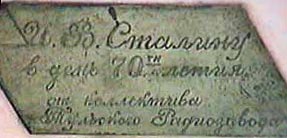 И. В. Сталину
в день 70ти летия
от коллектива
Тульского Радиозавода